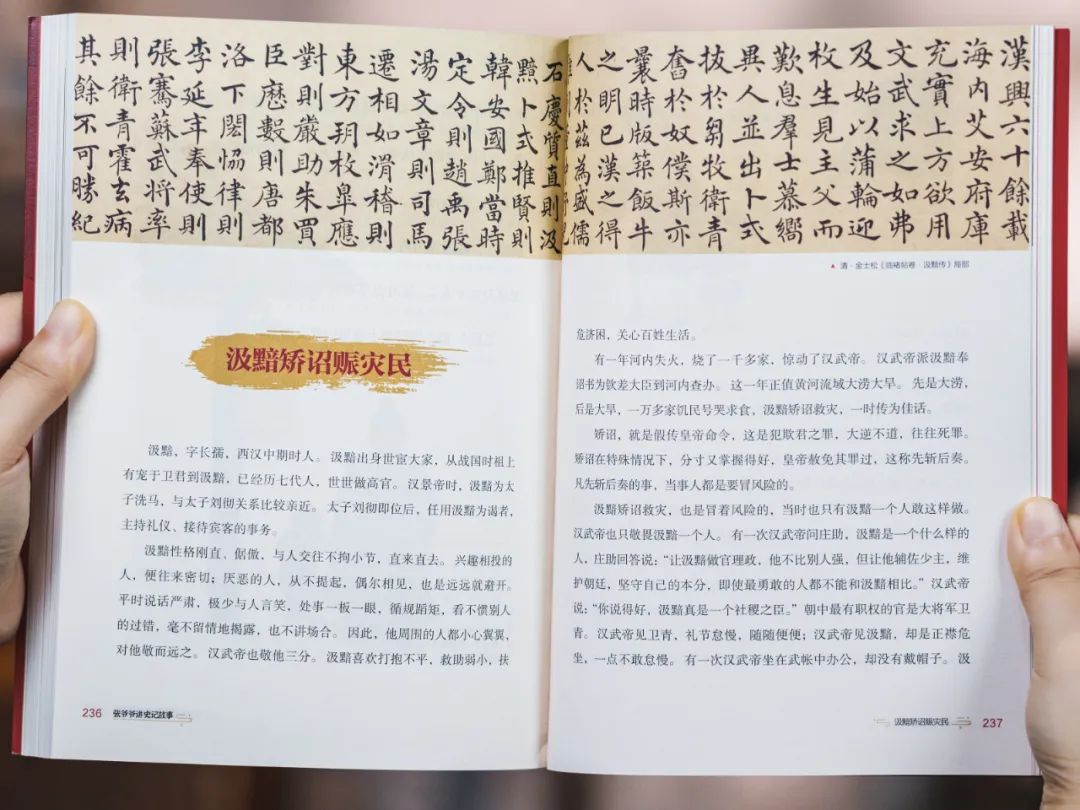 漢興六十餘載
海内艾安府庫
充實上方欲用
文武求之如弗
及始以蒲輪迎
枚生見主父而
歎息羣士慕嚮
異人並出卜式
拔於芻牧衛青
奮於奴僕斯亦
曩時版築飯牛
之明已漢之得
人於茲為盛儒
石慶質直則汲
黯卜式推賢則
韓安國鄭當時
定令則趙禹張
湯文章則司馬
遷相如滑稽則
東方朔枚皐應
對則嚴助朱買
臣歷數則唐都
洛下閎恊律則
李延年奉使則
張騫蘇武將率
則衛青霍去病
其餘不可勝紀
▲ 清·金士松《临褚帖卷·汲黯传》局部
汲黯矫诏赈灾民
汲黯，字长孺，西汉中期时人。汲黯出身世宦大家，从战国时祖上
有宠于卫君到汲黯，已经历七代人，世世做高官。汉景帝时，汲黯为太
子洗马，与太子刘彻关系比较亲近。太子刘彻即位后，任用汲黯为谒者，
主持礼仪、接待宾客的事务。
汲黯性格刚直、倨傲，与人交往不拘小节，直来直去。兴趣相投的
人，便往来密切；厌恶的人，从不提起，偶尔相见，也是远远就避开。
平时说话严肃，极少与人言笑，处事一板一眼，循规蹈矩，看不惯别人
的过错，毫不留情地揭露，也不讲场合。因此，他周围的人都小心翼翼，
对他敬而远之。汉武帝也敬他三分。汲黯喜欢打抱不平，救助弱小，扶
236 张爷爷讲史记故事
危济困，关心百姓生活。
有一年河内失火，烧了一千多家，惊动了汉武帝。汉武帝派汲黯奉
诏书为钦差大臣到河内查办。这一年正值黄河流域大涝大旱。先是大涝，
后是大旱，一万多家饥民号哭求食，汲黯矫诏救灾，一时传为佳话。
矫诏，就是假传皇帝命令，这是犯欺君之罪，大逆不道，往往死罪。
矫诏在特殊情况下，分寸又掌握得好，皇帝赦免其罪过，这称先斩后奏。
凡先斩后奏的事，当事人都是要冒风险的。
汲黯矫诏救灾，也是冒着风险的，当时也只有汲黯一个人敢这样做。
汉武帝也只敬畏汲黯一个人。有一次汉武帝问庄助，汲黯是一个什么样的
人，庄助回答说：“让汲黯做官理政，他不比别人强，但让他辅佐少主，维
护朝廷，坚守自己的本分，即使最勇敢的人都不能和汲黯相比。”汉武帝
说：“你说得好，汲黯真是一个社稷之臣。”朝中最有职权的官是大将军卫
青。汉武帝见卫青，礼节怠慢，随随便便；汉武帝见汲黯，却是正襟危
坐，一点不敢怠慢。有一次汉武帝坐在武帐中办公，却没有戴帽子。汲
汲黯矫诏赈灾民 237